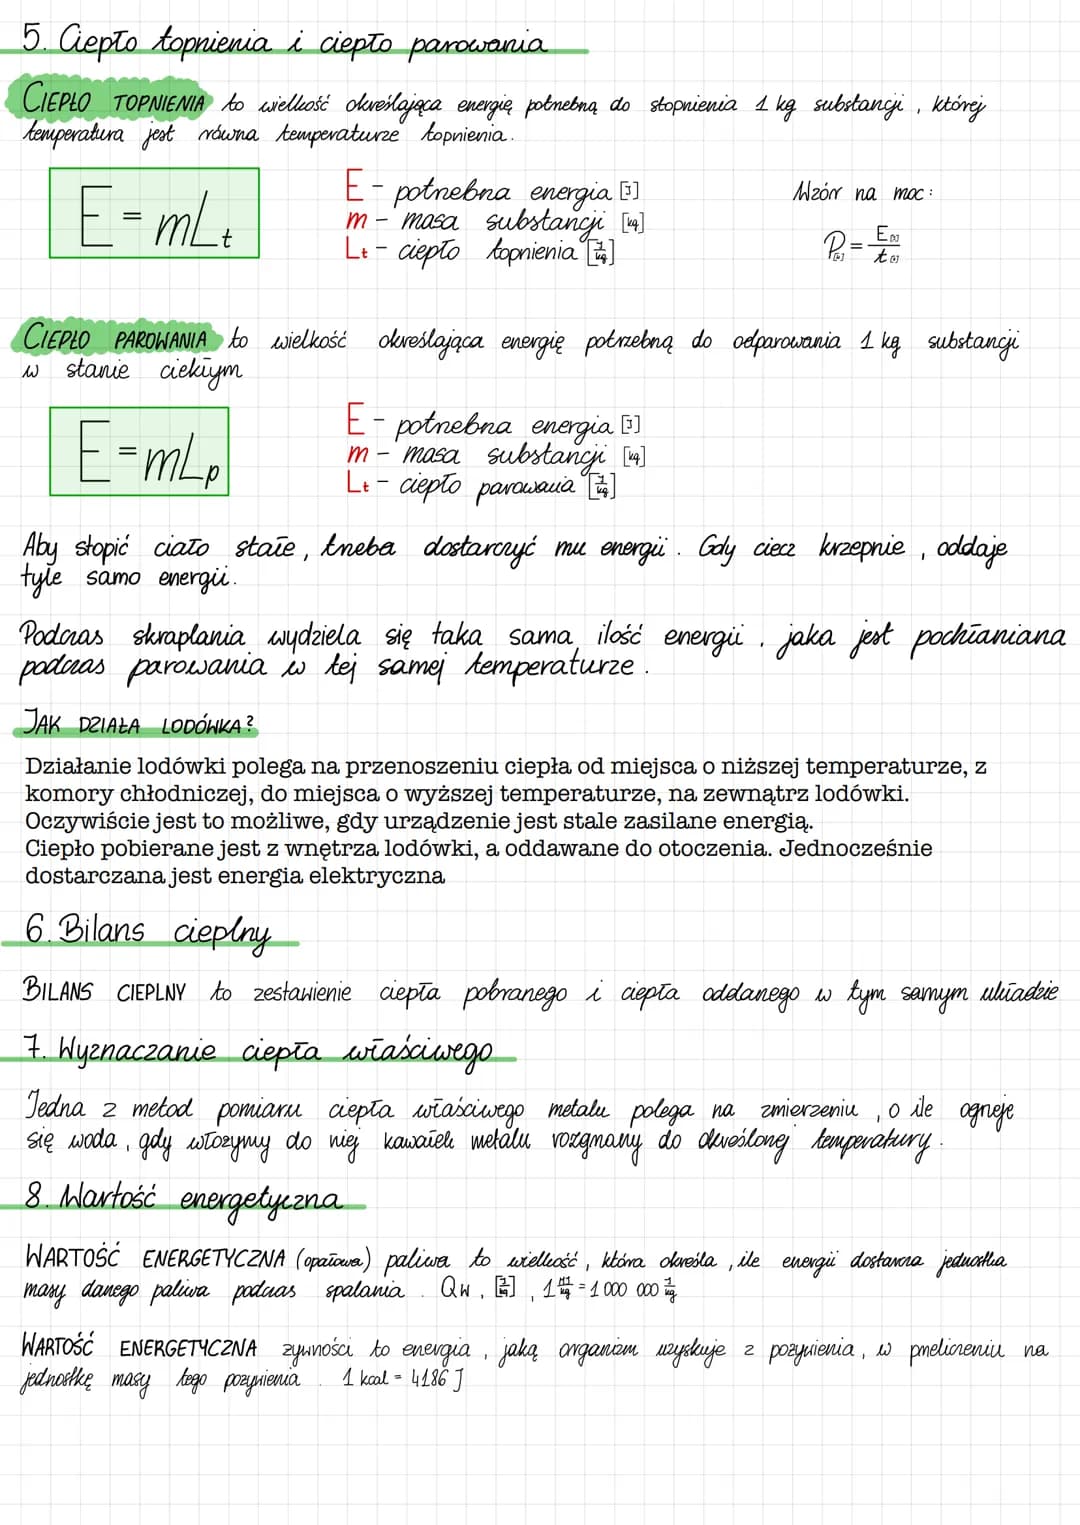 5. Ciepło topnienia i ciepło parowania
CIEPŁO TOPNIENIA to wielkość określająca energię potrzebną do stopnienia 1 kg substancji, której
temperatura jest równa temperaturze topnienia.
E = mLt
E - potrzebna energia [J]
m - masa substancji [kg]
Lt - ciepło topnienia [J/kg]
Wzórr na moc:
P[W] = E[J] / t[s]
CIEPŁO PAROWANIA to wielkość określająca energię potrzebną do odparowania 1 kg substancji
w stanie ciekłym
E = mLp
E - potrzebna energia [J]
m - masa substancji [kg]
Lt - ciepło parowania [J/kg]
Aby stopić ciało stałe, trzeba dostarczyć mu energii. Gdy ciecz krzepnie, oddaje
tyle samo energii.
Podczas skraplania wydziela się taka sama ilość energii, jaka jest pochłaniana
podczas parowania w tej samej temperaturze.
JAK DZIAŁA LODÓWKA?
Działanie lodówki polega na przenoszeniu ciepła od miejsca o niższej temperaturze, z
komory chłodniczej, do miejsca o wyższej temperaturze, na zewnątrz lodówki.
Oczywiście jest to możliwe, gdy urządzenie jest stale zasilane energią.
Ciepło pobierane jest z wnętrza lodówki, a oddawane do otoczenia. Jednocześnie
dostarczana jest energia elektryczna
6. Bilans cieplny
BILANS CIEPLNY to zestawienie ciepła pobranego i ciepła oddanego w tym samym układzie
7. Wyznaczanie ciepła właściwego
Jedna z metod pomiaru ciepła właściwego metalu polega na zmierzeniu, o ile ogrzeje
się woda, gdy włożymy do niej kawałek metalu rozgrzany do określonej temperatury.
8. Wartość energetyczna
WARTOŚĆ ENERGETYCZNA (opałowa) paliwa to wielkość, która określa, ile energii dostarcza jednostka
masy danego paliwa podczas spalania. Qw, [J/kg], 1 MJ/kg = 1 000 000 J/kg
WARTOŚĆ ENERGETYCZNA żywności to energia, jaką organizm uzyskuje z pożywienia, w przeliczeniu na
jednostkę masy tego pożywienia. 1 kcal = 4186 J